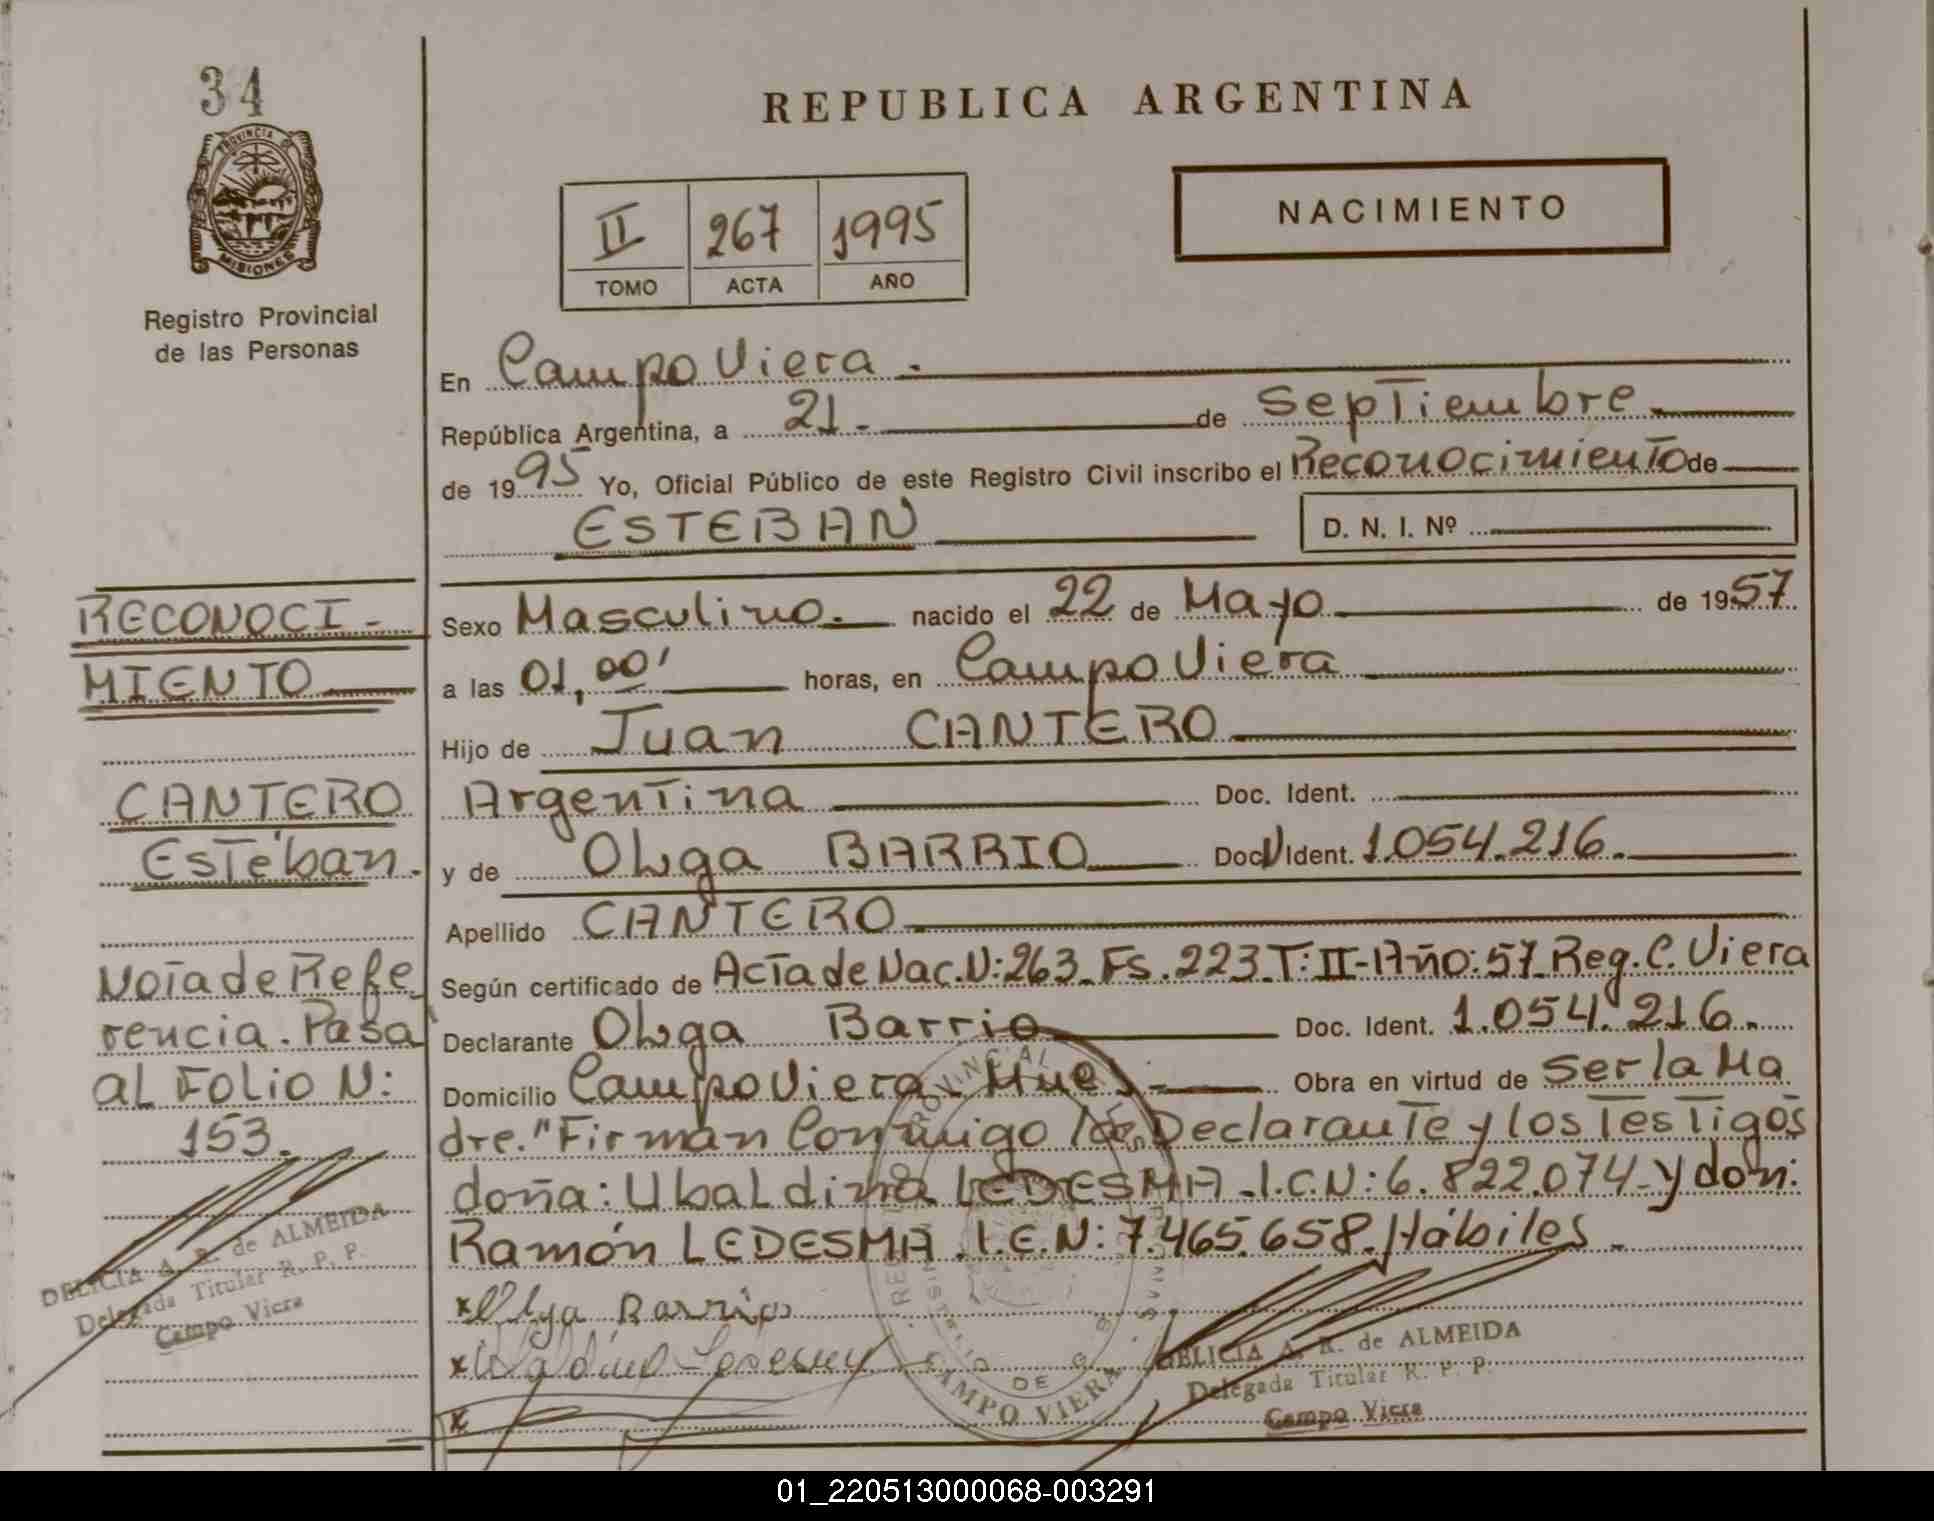 34
PROVINCIA DE
MISIONES
Registro Provincial
de las Personas
REPUBLICA ARGENTINA
II 267 1995
TOMO ACTA AÑO
NACIMIENTO
En Campo Viera.
República Argentina, a 21.- de Septiembre.
de 1995 Yo, Oficial Público de este Registro Civil inscribo el Reconocimiento de
ESTEBAN D. N. I. Nº
Sexo Masculino. nacido el 22 de Mayo de 1957
a las 01,00' horas, en Campo Viera
Hijo de Juan CANTERO
Argentina Doc. Ident.
y de Olga BARRIO Doc. Ident. 1.054.216.
Apellido CANTERO
Según certificado de Acta de Nac. N: 263 Fs. 223 T: II-Año: 57 Reg. C. Viera
Declarante Olga Barrio Doc. Ident. 1.054.216.
Domicilio Campo Viera Mnes.- Obra en virtud de ser la Ma
dre." Firman Conmigo la Declarante y los Testigos
doña: Ubaldina LEDESMA .I.C.N: 6.822.074 y don:
Ramón LEDESMA .I.E.N: 7.465.658. Hábiles.
x Olga Barrio
x
x
RECONOCI-
MIENTO
CANTERO
Esteban.
Nota de Refe
rencia. Pasa
al FOLIO N:
153.
DELICIA A. R. de ALMEIDA
Delegada Titular R. P. P.
Campo Viera
REGISTRO PROVINCIAL DE LAS PERSONAS
DE
CAMPO VIERA
DELICIA A. R. de ALMEIDA
Delegada Titular R. P. P.
Campo Viera
01_220513000068-003291